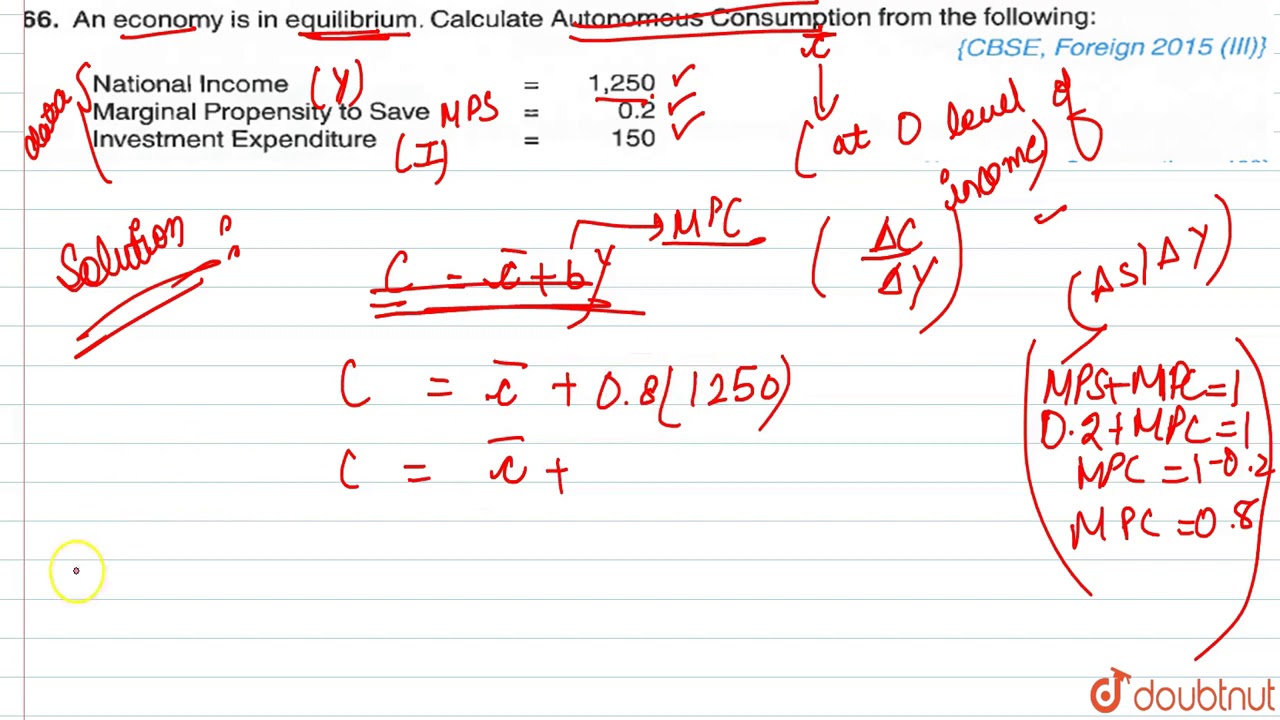 66. An economy is in equilibrium. Calculate Autonomous Consumption from the following:
c̅
{CBSE, Foreign 2015 (III)}
data
National Income (Y) = 1,250 ✓
Marginal Propensity to Save MPS = 0.2 ✓
Investment Expenditure (I) = 150 ✓
(at 0 level of
income)
Solution :
C = c̅ + bY
MPC
(ΔC/ΔY)
(ΔS/ΔY)
C = c̅ + 0.8(1250)
C = c̅ +
MPS+MPC=1
0.2+MPC=1
MPC=1-0.2
MPC=0.8
doubtnut